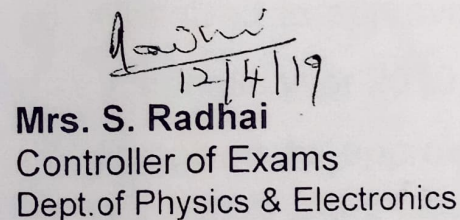 Radhai
12/4/19
Mrs. S. Radhai
Controller of Exams
Dept.of Physics & Electronics